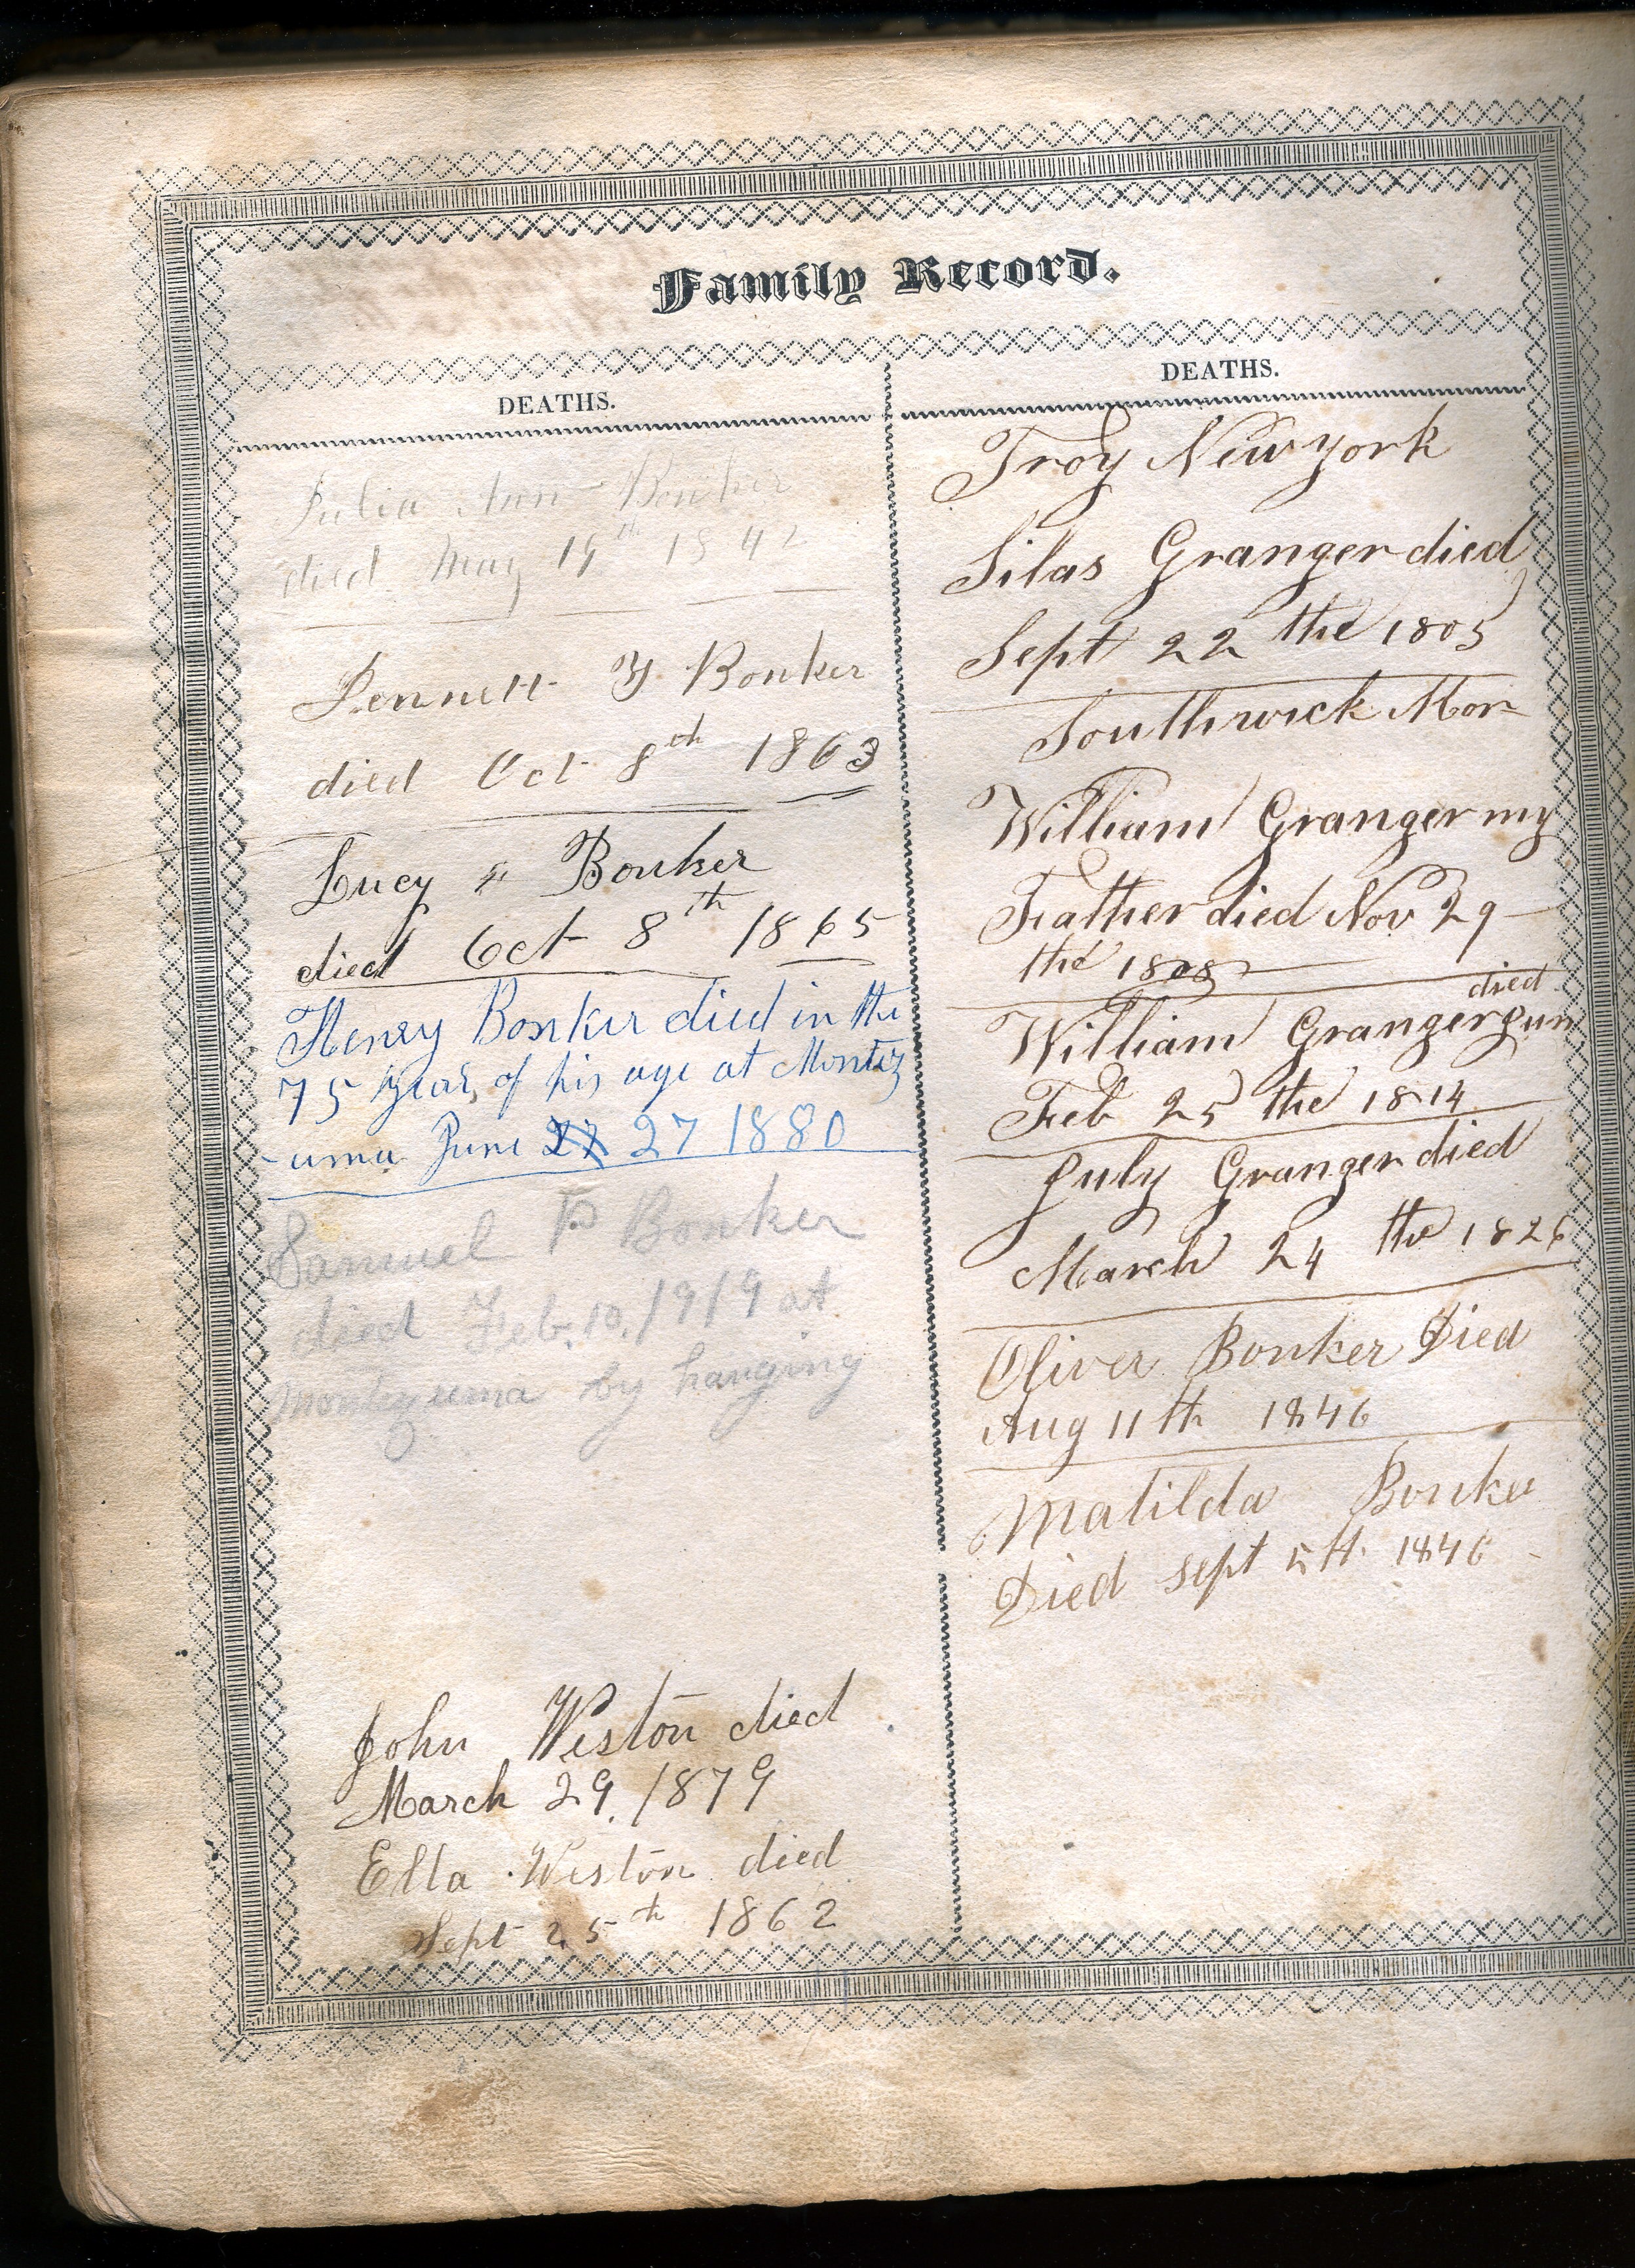 Family Record.
DEATHS.
Julia Ann Bonker
died May 19th 1842
Bennett Y Bonker
died Oct 8th 1863
Lucy Bonker
died Oct 8th 1865
Henry Bonker died in the
75 year of his age at Montez
-uma June 27 1880
Samuel P Bonker
died Feb. 10, 1919 at
Montezuma by hanging
John Weston died
March 29, 1879
Ella Weston died
Sept 25th 1862
DEATHS.
Troy New york
Silas Granger died
Sept 22 the 1805
Southwick Mon
William Granger my
Father died Nov 29
the 1808
died
William Granger jun
Feb 25 the 1814
July Granger died
March 24 the 1826
Oliver Bonker Died
Aug 11th 1846
Matilda Bonker
Died Sept 5th 1846